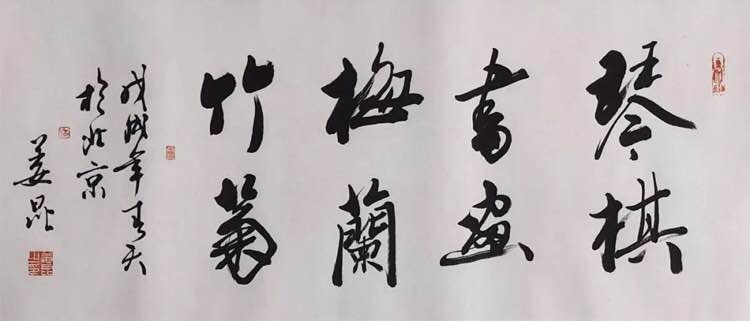 琴棋
書画
梅蘭
竹菊
戊戌年春天
於北京
姜昆